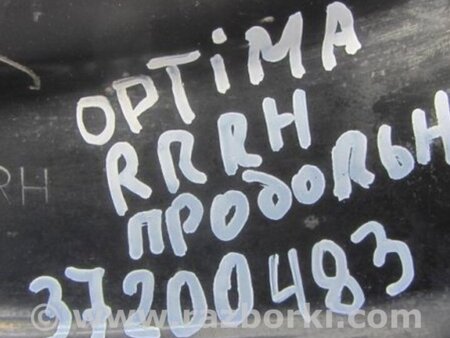 OPTiMA
RRRH
RH
ПРОДОЛЬН
37200483
www.razborki.com